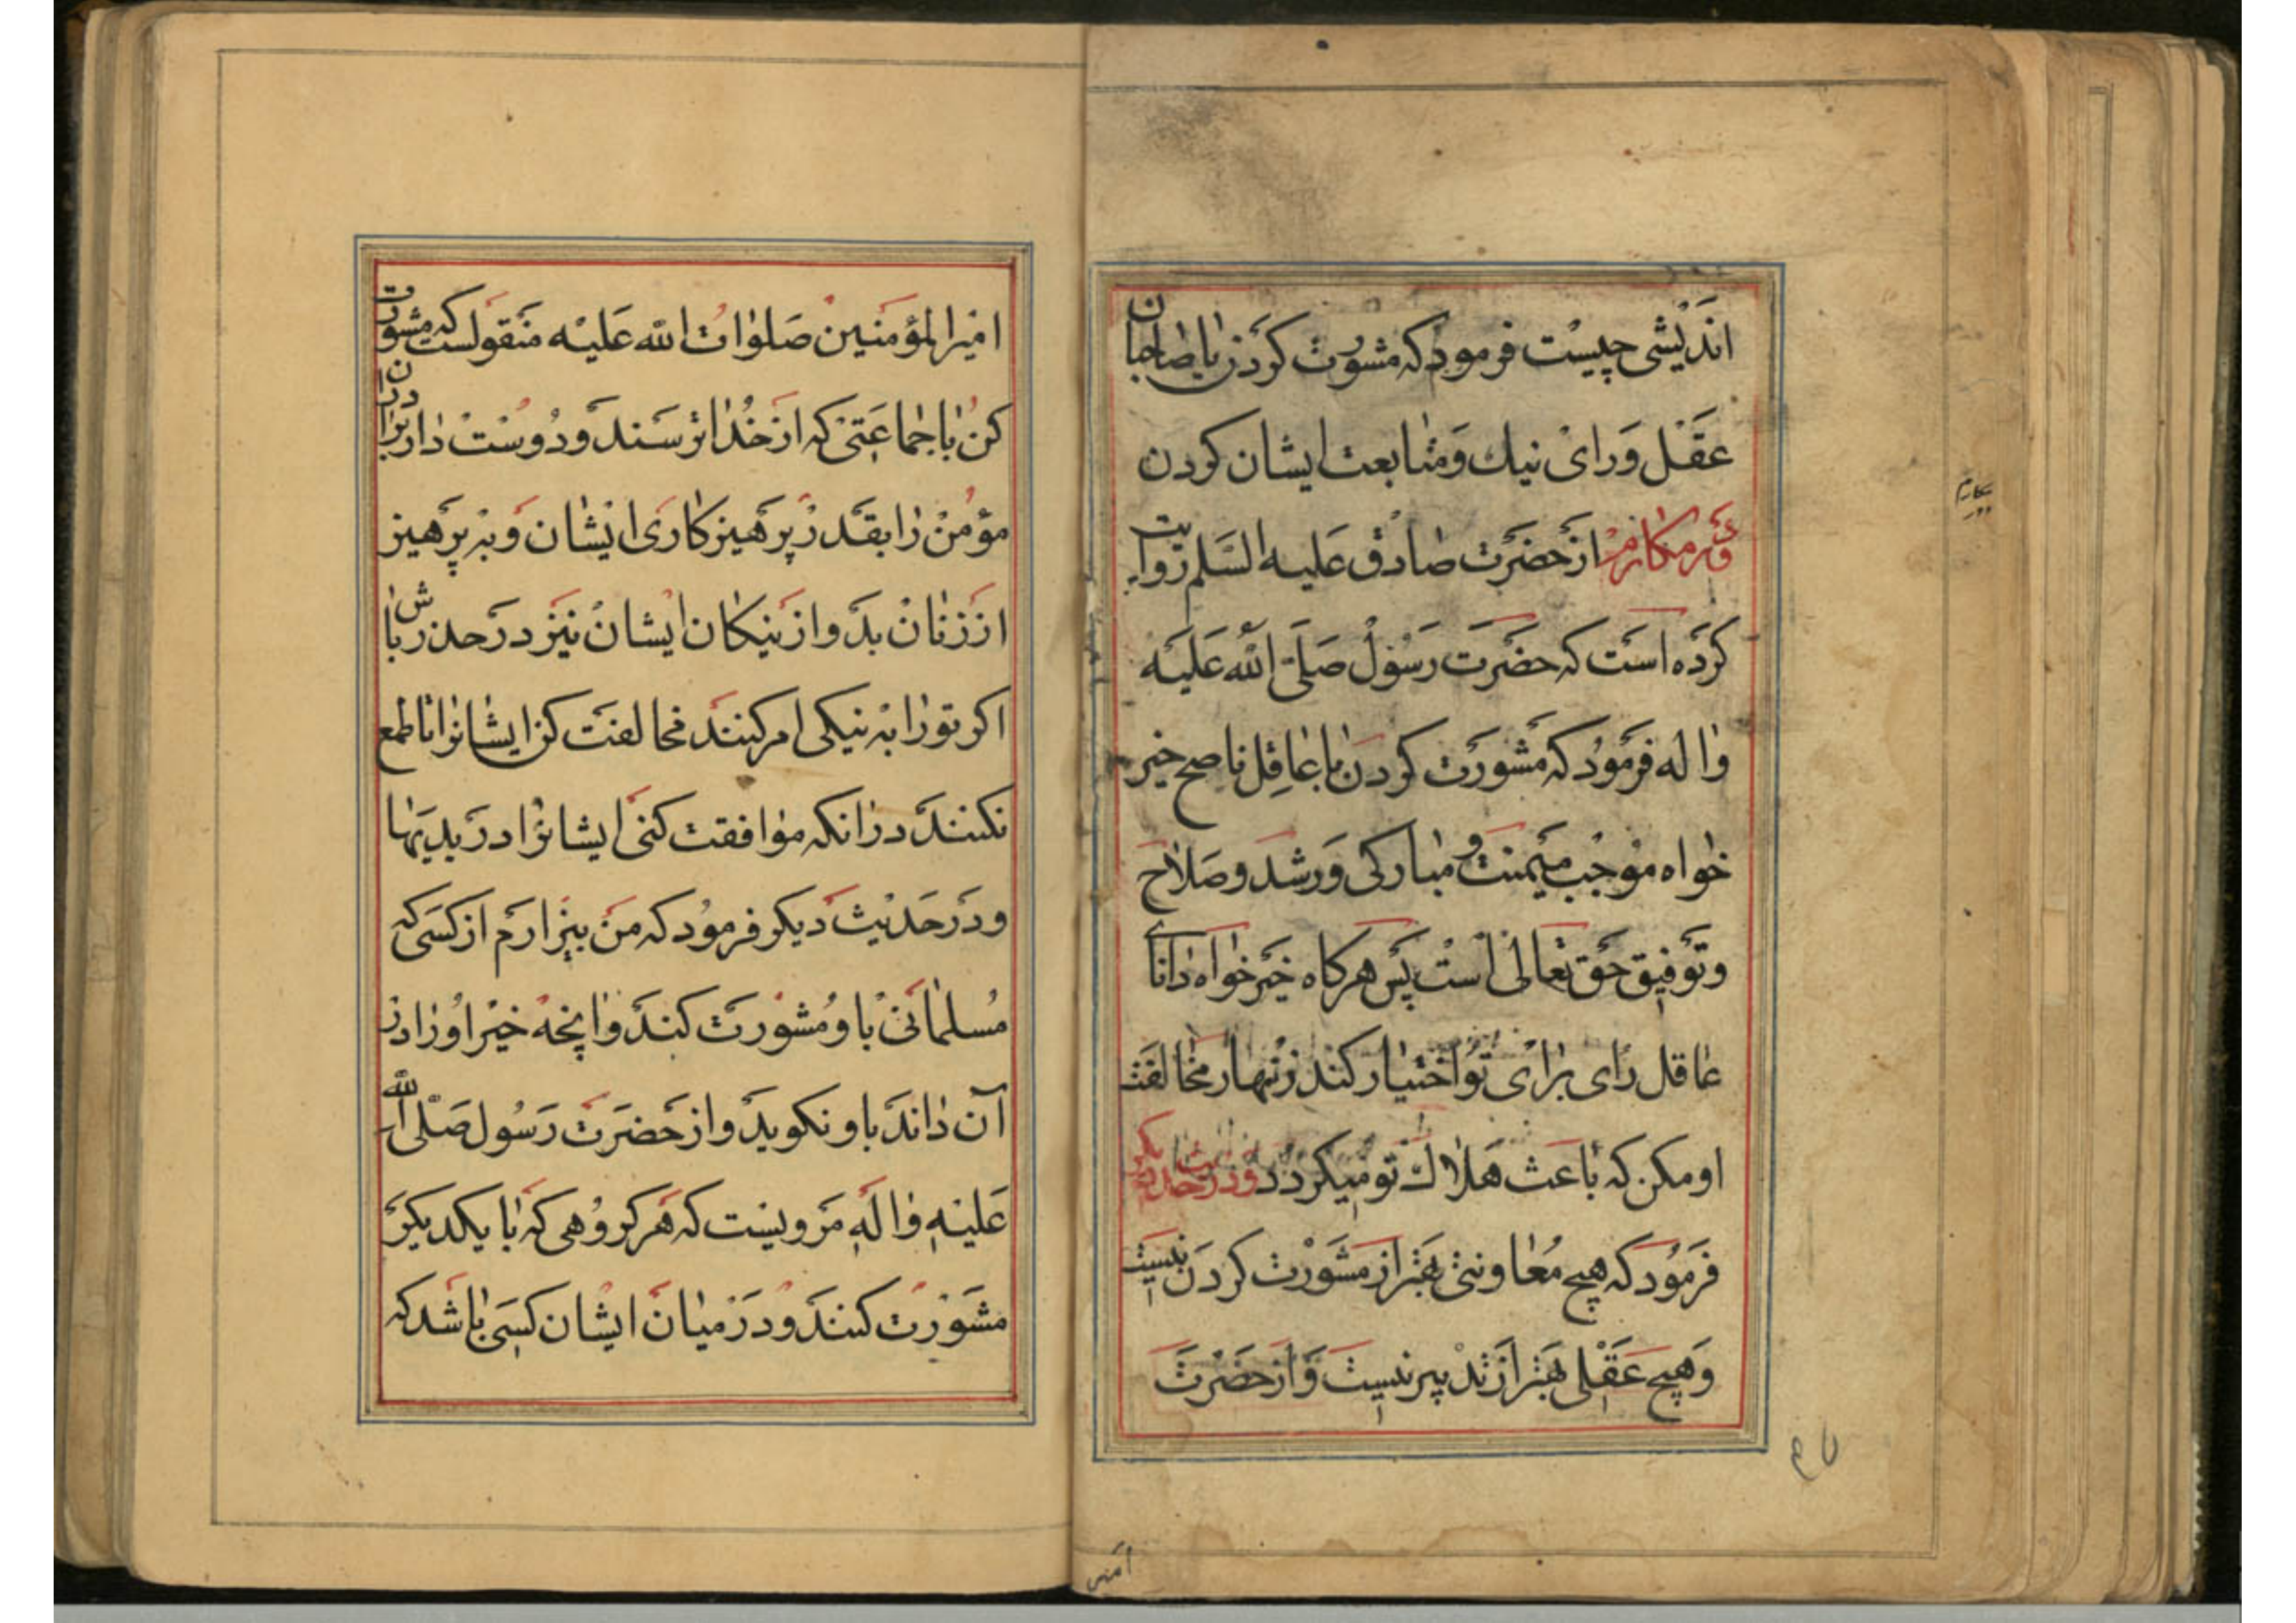 اندیشی چیست فرمود که مشورت کردن با صاحبان
عقل و رای نیك و متابعت ایشان کردن
و در مکارم از حضرت صادق علیه السلم روایت
کرده است که حضرت رسول صلی الله علیه
و اله فرمود که مشورت کردن با عاقل ناصح خیر
خواه موجب میمنت و مبارکی و رشد و صلاح
و توفیق حق تعالی است پس هرکاه خیر خواه دانای
عاقل رای برای تو اختیار کند زنهار مخالفت
او مکن که باعث هلاك تو میکردد و در حدیث دیکر
فرمود که هیچ معاونتی بهتر از مشورت کردن نیست
و هیچ عقلی بهتر از تدبیر نیست و از حضرت
امیر
امیر المؤمنین صلوات الله علیه منقولست که مشورت
کن با جماعتی که از خدا ترسند و دوست دار برادران
مؤمن را بقدر پرهیزکاری ایشان و به پرهیز
از زنان بد و از نیکان ایشان نیز در حذر باش
اکر تو را به نیکی امر کنند مخالفت کن ایشانرا تا طمع
نکنند در انکه موافقت کنی ایشانرا در بدیها
و در حدیث دیکر فرمود که من بیزارم از کسی که
مسلمانی با او مشورت کند و انچه خیر او را در
آن داند با و نکوید و از حضرت رسول صلی الله
علیه و اله مرویست که هر کروهی که با یکدیکر
مشورت کنند و در میان ایشان کسی باشد که